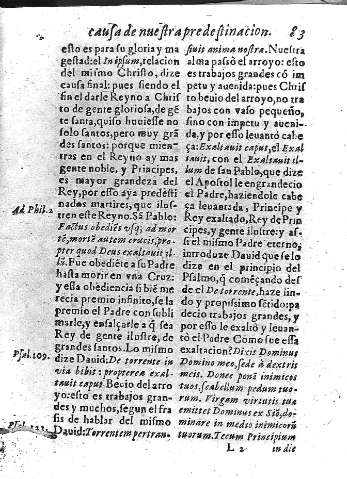 causa de nuestra predestinacion. 83
esto es para su gloria y ma
gestad: el In ipsum, relacion
del mismo Christo, dize
causa final: pues siendo el
fin el darle Reyno a Chris
to de gente gloriosa, de gẽ
te santa, quiso huuiesse no
solo santos, pero muy grã
des santos: porque mien-
tras en el Reyno ay mas
gente noble, y Principes,
es mayor grandeza del
Rey, por esso aya predesti
nados martires, que ilus-
tren este Reyno. Sã Pablo:
Ad Phil. 2
Factus obediẽs vsq; ad mor
tẽ, mortẽ autem crucis, pro-
pter quod Deus exaltauit il-
lũ. Fue obediẽte a su Padre
hasta morir en vna Cruz:
y essa obediencia si biẽ me
recia premio infinito, se la
premio el Padre con subli
marle, y ensalçarle a q̃ sea
Rey de gente ilustre, de
grandes santos. Lo mismo
Psal. 109.
dize Dauid: De torrente in
via bibit: propterea exal-
tauit caput. Beuio del arro
yo: esto es trabajos gran-
des y muchos, segun el fra
sis de hablar del mismo
Psal. 123.
Dauid: Torrentem pertran-
siuit anima nostra. Nuestra
alma passò el arroyo: esto
es trabajos grandes cõ im
petu y auenida: pues Chris
to beuio del arroyo, no tra
bajos con vaso pequeño,
sino con impetu y aueni-
da, y por esso leuantò cabe
ça: Exaltauit caput, el Exal
tauit, con el Exaltauit il-
lum de san Pablo, que dize
el Apostol le engrandecio
el Padre, haziendole cabe
ça leuantada, Principe y
Rey exaltado, Rey de Prin
cipes, y gente ilustre: y as-
si el mismo Padre eterno,
introduze Dauid que se lo
dize en el principio del
Psalmo, q̃ comẽçando des
de el De torrente, haze lin-
do y propissimo sẽtido: pa
decio trabajos grandes, y
por esso le exaltò y leuan-
tò el Padre Como fue essa
exaltacion? Dicis Dominus
Domino meo, sede à dextris
meis. Donec ponã inimicos
tuos, scabellum pedum tuo-
rum. Virgam virtutis tuæ
emittet Dominus ex Siõ, do-
minare in medio inimicorũ
tuorum. Tecum Principium
L 2 in die